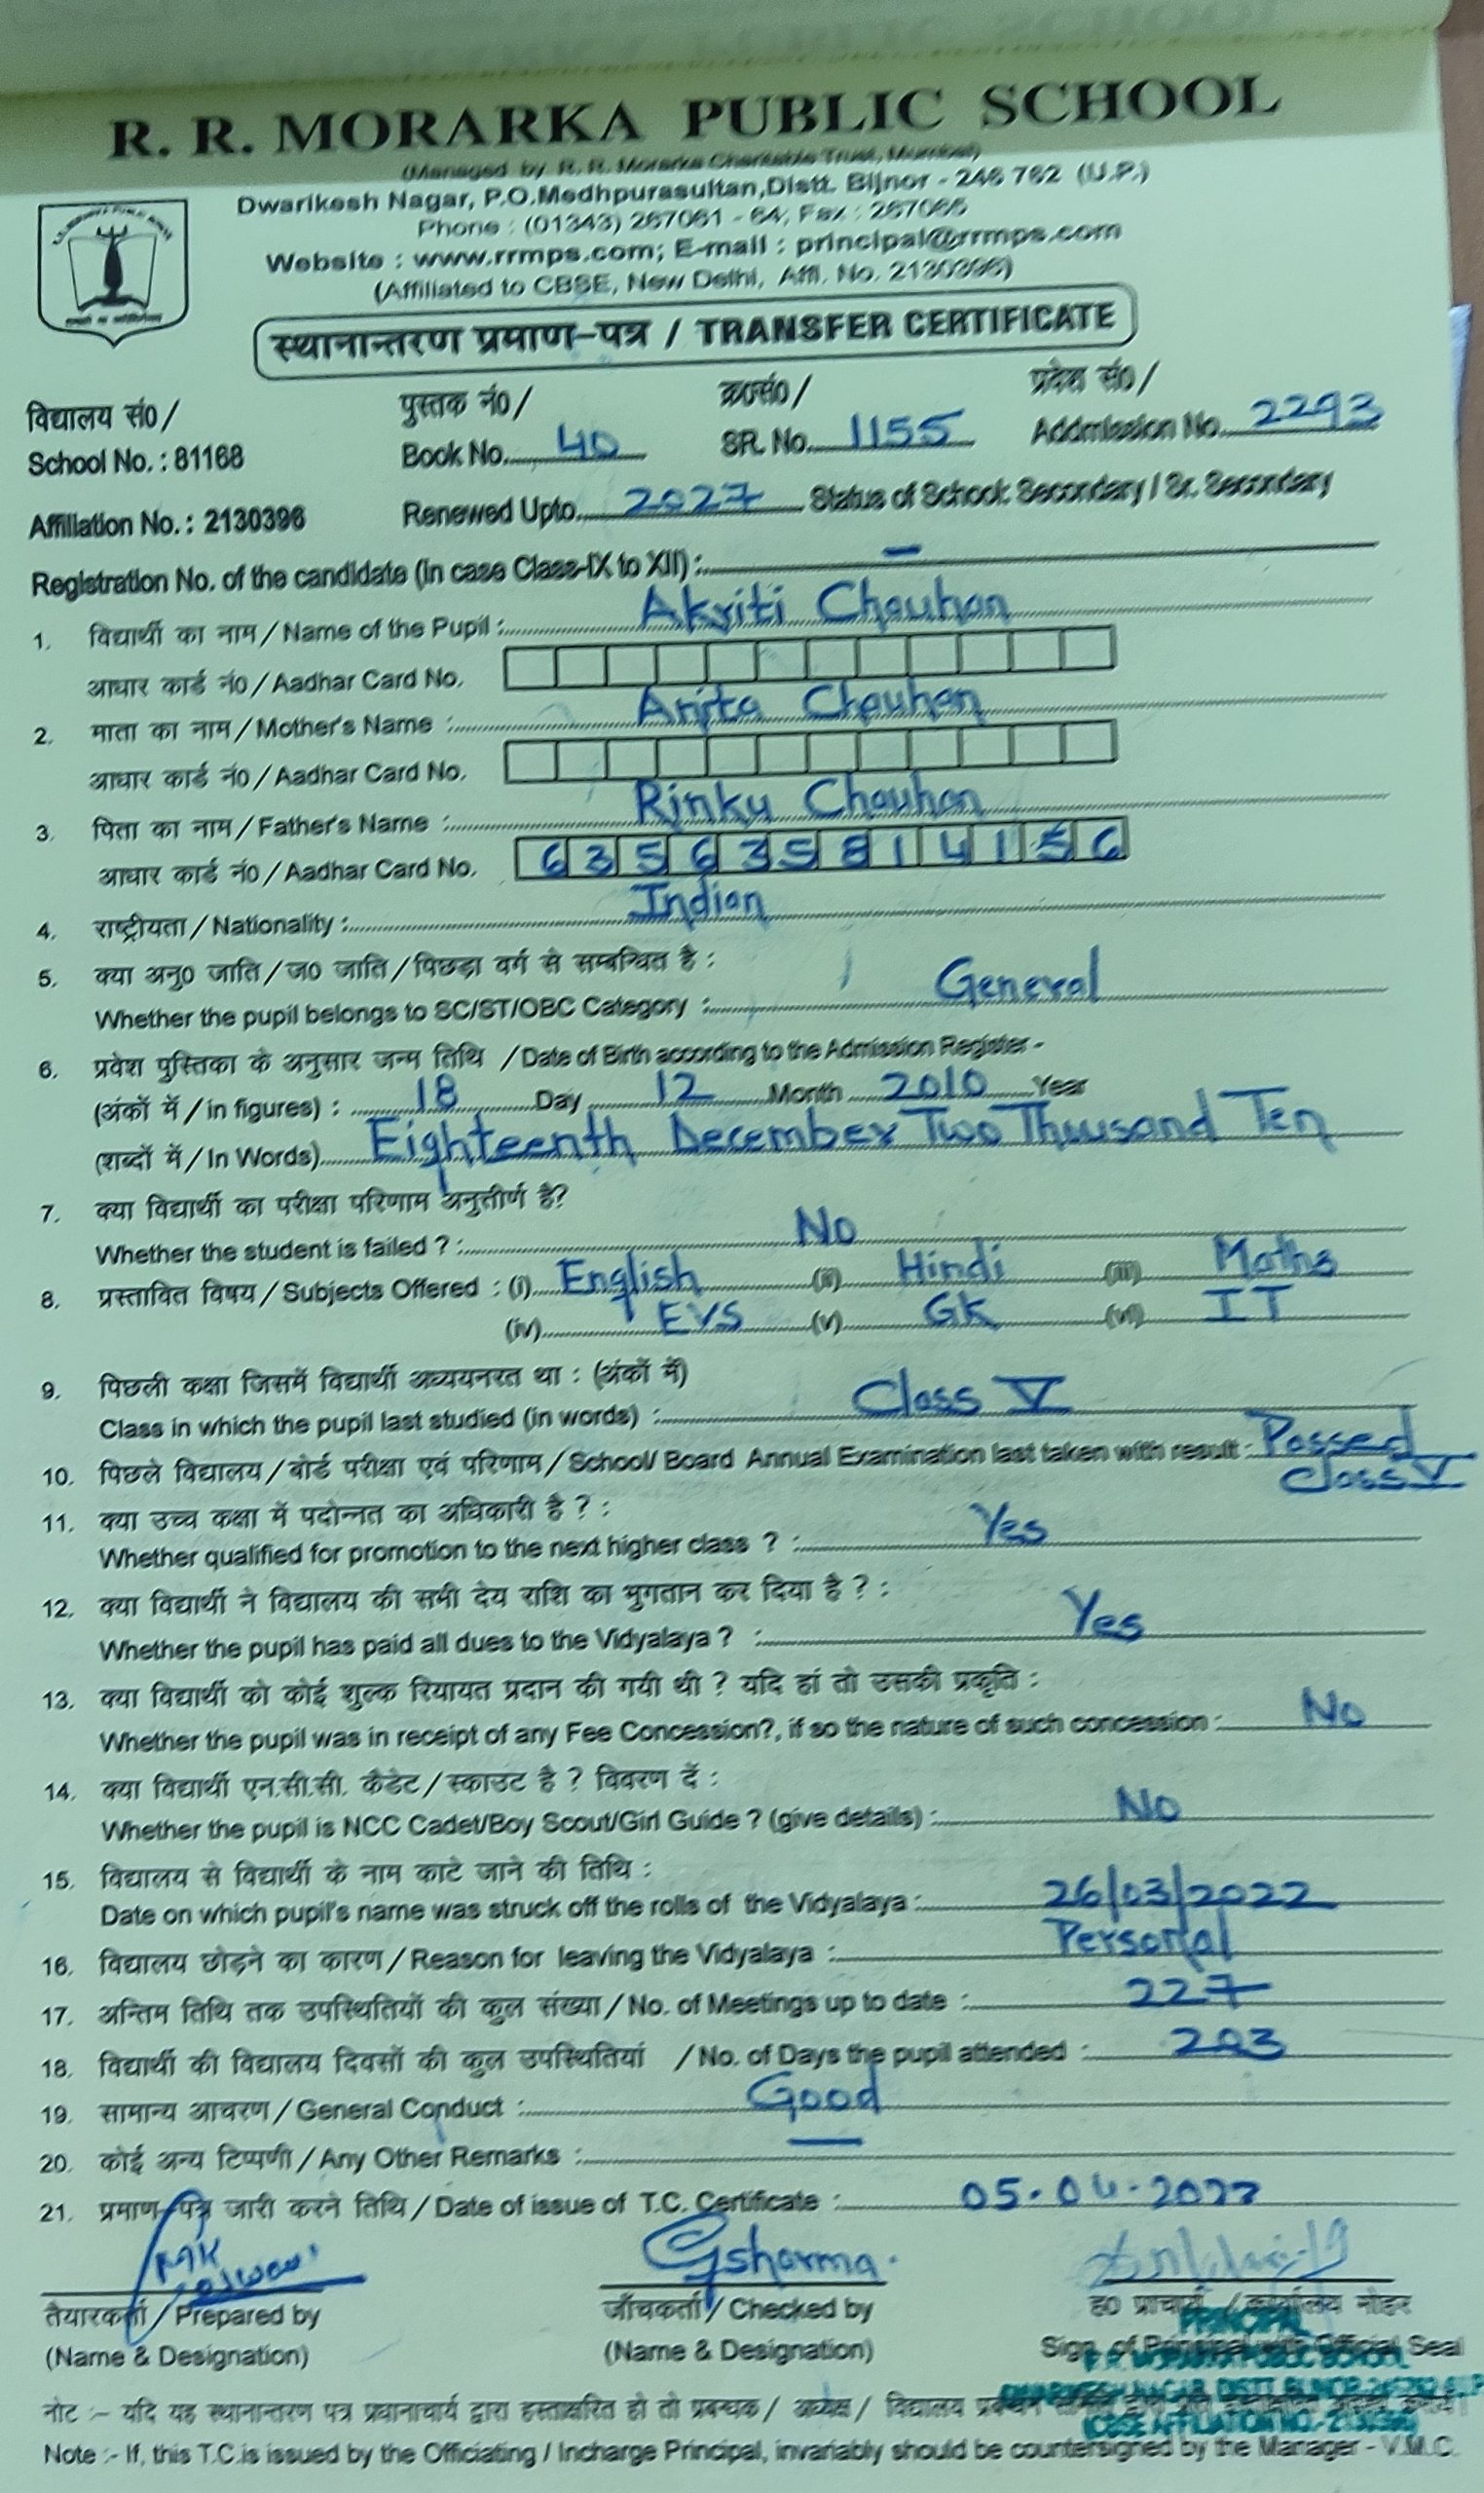 R. R. MORARKA PUBLIC SCHOOL
(Managed by R. R. Morarka Charitable Trust, Mumbai)
Dwarikesh Nagar, P.O.Medhpurasultan,Distt. Bijnor - 246 762 (U.P.)
Phone : (01343) 267061 - 64, Fax : 267065
Website : www.rrmps.com; E-mail : principal@rrmps.com
(Affiliated to CBSE, New Delhi, Affi. No. 2130396)
स्थानान्तरण प्रमाण-पत्र / TRANSFER CERTIFICATE
विद्यालय सं0/ पुस्तक नं0/ क्र0सं0/ प्रवेश सं0/
School No. : 81168 Book No. 40 SR. No. 1155 Addmission No. 2293
Affiliation No. : 2130396 Renewed Upto 2027 Status of School: Secondary / Sr. Secondary
Registration No. of the candidate (in case Class-IX to XII) : –
1. विद्यार्थी का नाम / Name of the Pupil : Akriti Chauhan
आधार कार्ड नं0 / Aadhar Card No.
2. माता का नाम / Mother's Name : Anita Chauhan
आधार कार्ड नं0 / Aadhar Card No.
3. पिता का नाम / Father's Name : Rinku Chauhan
आधार कार्ड नं0 / Aadhar Card No. 635635814156
4. राष्ट्रीयता / Nationality : Indian
5. क्या अनु0 जाति / ज0 जाति / पिछड़ा वर्ग से सम्बन्धित है :
Whether the pupil belongs to SC/ST/OBC Category : General
6. प्रवेश पुस्तिका के अनुसार जन्म तिथि / Date of Birth according to the Admission Register -
(अंकों में / in figures) : 18 Day 12 Month 2010 Year
(शब्दों में / In Words) Eighteenth December Two Thousand Ten
7. क्या विद्यार्थी का परीक्षा परिणाम अनुत्तीर्ण है?
Whether the student is failed ? : No
8. प्रस्तावित विषय / Subjects Offered : (i) English (ii) Hindi (iii) Maths
(iv) EVS (v) GK (vi) IT
9. पिछली कक्षा जिसमें विद्यार्थी अध्ययनरत था : (अंकों में)
Class in which the pupil last studied (in words) : Class V
10. पिछले विद्यालय / बोर्ड परीक्षा एवं परिणाम / School/ Board Annual Examination last taken with result : Passed
Class V
11. क्या उच्च कक्षा में पदोन्नत का अधिकारी है ? :
Whether qualified for promotion to the next higher class ? : Yes
12. क्या विद्यार्थी ने विद्यालय की सभी देय राशि का भुगतान कर दिया है ? :
Whether the pupil has paid all dues to the Vidyalaya ? : Yes
13. क्या विद्यार्थी को कोई शुल्क रियायत प्रदान की गयी थी ? यदि हां तो उसकी प्रकृति :
Whether the pupil was in receipt of any Fee Concession?, if so the nature of such concession : No
14. क्या विद्यार्थी एन.सी.सी. कैडेट / स्काउट है ? विवरण दें :
Whether the pupil is NCC Cadet/Boy Scout/Girl Guide ? (give details) : No
15. विद्यालय से विद्यार्थी के नाम काटे जाने की तिथि :
Date on which pupil's name was struck off the rolls of the Vidyalaya : 26/03/2022
16. विद्यालय छोड़ने का कारण / Reason for leaving the Vidyalaya : Personal
17. अन्तिम तिथि तक उपस्थितियों की कुल संख्या / No. of Meetings up to date : 227
18. विद्यार्थी की विद्यालय दिवसों की कुल उपस्थितियां / No. of Days the pupil attended : 203
19. सामान्य आचरण / General Conduct : Good
20. कोई अन्य टिप्पणी / Any Other Remarks : —
21. प्रमाण-पत्र जारी करने तिथि / Date of issue of T.C. Certificate : 05.04.2022
Gsharma.
तैयारकर्ता / Prepared by जाँचकर्ता / Checked by ह0 प्राचार्य / कार्यालय मोहर
(Name & Designation) (Name & Designation) Sign. of Principal with Official Seal
PRINCIPAL
R. R. MORARKA PUBLIC SCHOOL
DWARIKESH NAGAR, DISTT. BIJNOR-246762 U.P.
(CBSE AFFILIATION NO.- 2130396)
नोट :- यदि यह स्थानान्तरण पत्र प्रधानाचार्य द्वारा हस्ताक्षरित हो तो प्रबन्धक / अध्यक्ष / विद्यालय
Note :- If, this T.C.is issued by the Officiating / Incharge Principal, invariably should be countersigned by the Manager - V.M.C.